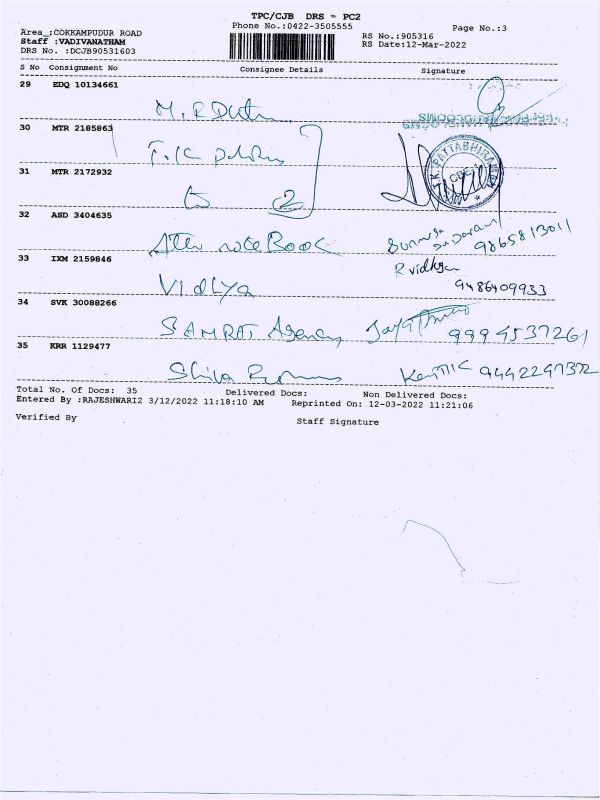 TPC/CJB DRS - PC2
Phone No.:0422-3505555
Page No.:3
Area :COKKAMPUDUR ROAD
Staff :VADIVANATHAM
DRS No. :DCJB90531603
RS No.:905316
RS Date:12-Mar-2022
S No Consignment No Consignee Details Signature
29 EDQ 10134661
M.R
30 MTR 2185863
31 MTR 2172932
2
32 ASD 3404635
note Book
9865813011
33 IXM 2159846
Vidhya R vidhya
9486409933
34 SVK 30088266
SAMRAT Agency 9994537261
35 KRR 1129477
Shiva 9442297372
Total No. Of Docs: 35 Delivered Docs: Non Delivered Docs:
Entered By :RAJESHWARI2 3/12/2022 11:18:10 AM Reprinted On: 12-03-2022 11:21:06
Verified By Staff Signature